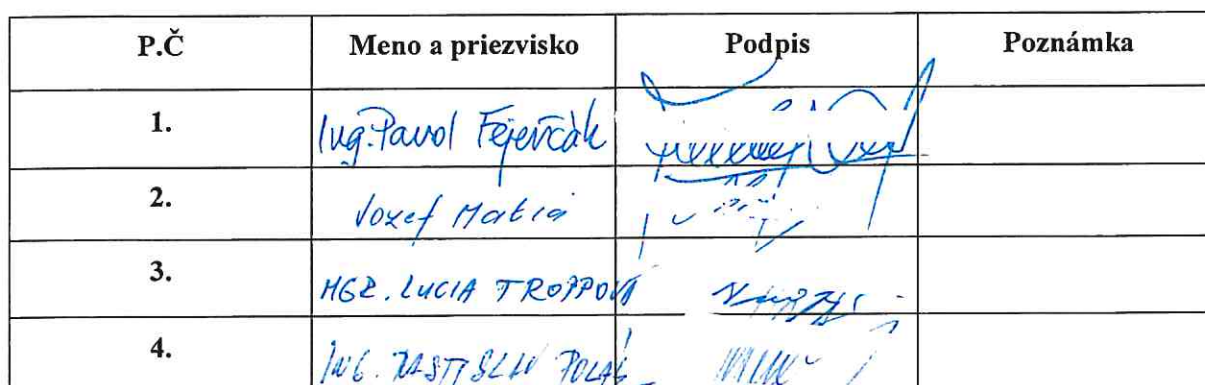 P.Č Meno a priezvisko Podpis Poznámka
1. Ing. Pavol Fejerčák
2. Jozef Matia
3. MGR. LUCIA TROPPOVÁ
4. ING. RASTISLAV POLÁK